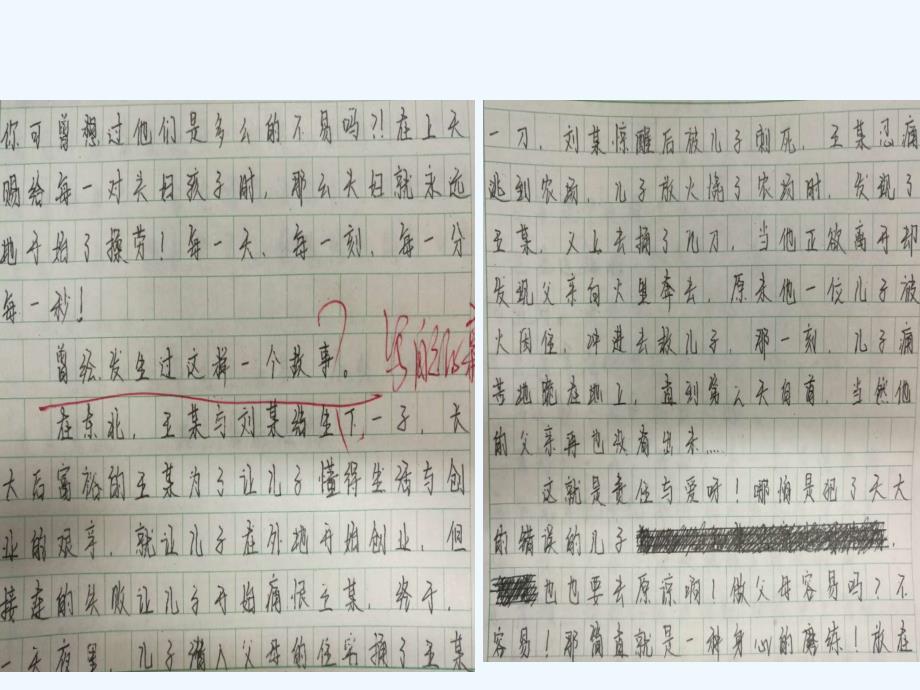 你可曾想过他们是多么的不易吗?!在上天
赐给每一对夫妇孩子时，那么夫妇就永远
地开始了操劳！每一天、每一刻、每一分
每一秒！
曾经发生过这样一个故事。
?
写
在东北，王某与刘某结生下一子，长
大后富裕的王某为了让儿子懂得生活与创
业的艰辛，就让儿子在外地开始创业，但
接连的失败让儿子开始痛恨王某，终于，
一天夜里，儿子潜入父母的住宅捅了王某
一刀，刘某惊醒后被儿子刺死，王某忍痛
逃到农场，儿子放火烧了农场时，发现了
王某，又上去捅了几刀，当他正欲离开却
发现父亲向火里奔去，原来他一位儿子被
火困住，冲进去救儿子，那一刻，儿子痛
苦地跪在地上，直到第二天自首，当然他
的父亲再也没有出来……
这就是责任与爱呀！哪怕是犯了天大
的错误的儿子
也也要去原谅啊！做父母容易吗？不
容易！那简直就是一种身心的磨练！放在